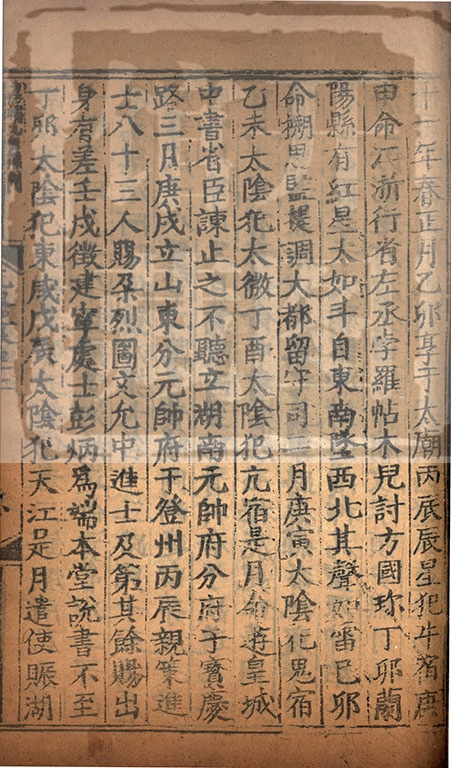 十一年春正月乙卯享于太廟丙辰辰星犯牛宿庚
申命江浙行省左丞孛羅帖木兒討方國珍丁卯蘭
陽縣有紅星大如斗自東南墜西北其聲如雷己卯
命搠思監提調大都留守司二月庚寅太陰犯鬼宿
乙未太陰犯太微丁酉太陰犯亢宿是月命遊皇城
中書省臣諫止之不聽立湖南元帥府分府于寶慶
路三月庚戌立山東分元帥府于登州丙辰親策進
士八十三人賜朶烈圖文允中進士及第其餘賜出
身有差壬戌徵建寧處士彭炳爲端本堂說書不至
丁卯太陰犯東咸戊辰太陰犯天江是月遣使賑湖